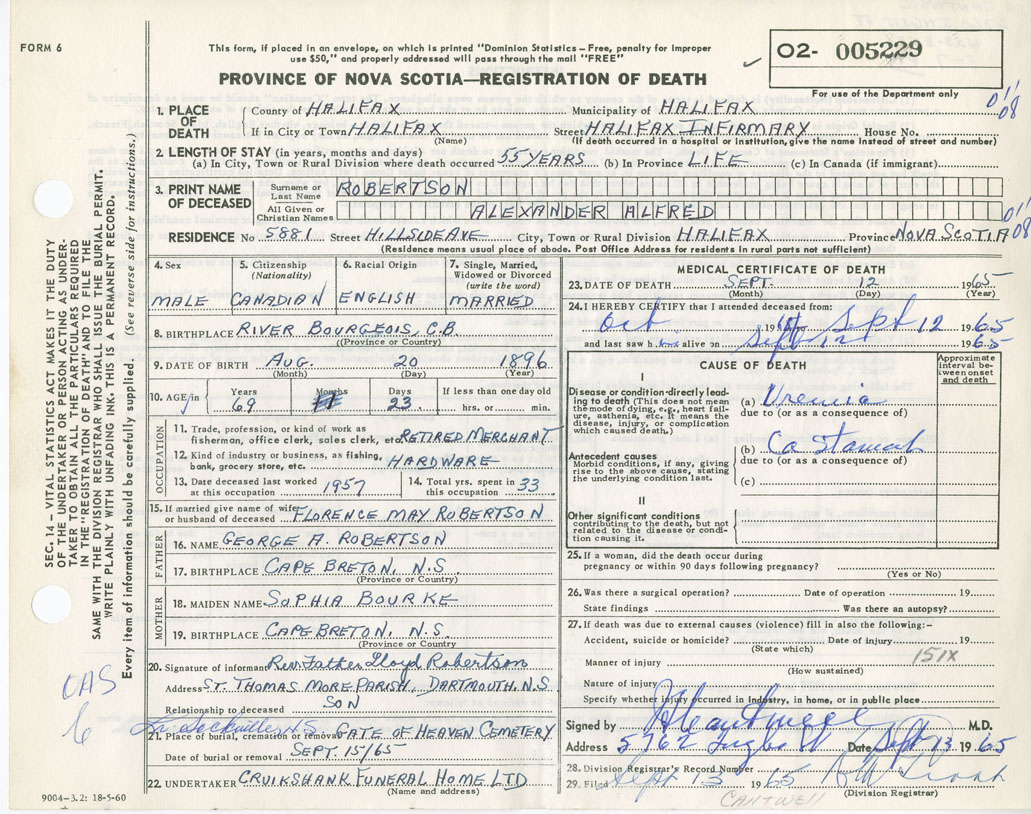 FORM 6
This form, if placed in an envelope, on which is printed "Dominion Statistics – Free, penalty for improper
use $50," and properly addressed will pass through the mail "FREE"
PROVINCE OF NOVA SCOTIA—REGISTRATION OF DEATH
O2- 005229
For use of the Department only
011
08
1. PLACE OF DEATH
County of HALIFAX Municipality of HALIFAX
If in City or Town HALIFAX Street HALIFAX INFIRMARY House No.
(Name) (If death occurred in a hospital or institution, give the name instead of street and number)
2. LENGTH OF STAY (in years, months and days)
(a) In City, Town or Rural Division where death occurred 55 YEARS (b) In Province LIFE (c) In Canada (if immigrant)
3. PRINT NAME OF DECEASED
Surname or Last Name ROBERTSON
All Given or Christian Names ALEXANDER ALFRED
011
08
RESIDENCE No 5881 Street HILLSIDE AVE City, Town or Rural Division HALIFAX Province NOVA SCOTIA
(Residence means usual place of abode. Post Office Address for residents in rural parts not sufficient)
4. Sex
MALE
5. Citizenship
(Nationality)
CANADIAN
6. Racial Origin
ENGLISH
7. Single, Married,
Widowed or Divorced
(write the word)
MARRIED
8. BIRTHPLACE RIVER BOURGEOIS, C.B.
(Province or Country)
9. DATE OF BIRTH AUG. 20 1896
(Month) (Day) (Year)
10. AGE in
Years
69
Months
Days
23
If less than one day old
hrs. or min.
OCCUPATION
11. Trade, profession, or kind of work as
fisherman, office clerk, sales clerk, etc. RETIRED MERCHANT
12. Kind of industry or business, as fishing,
bank, grocery store, etc. HARDWARE
13. Date deceased last worked
at this occupation 1957
14. Total yrs. spent in
this occupation 33
15. If married give name of wife
or husband of deceased FLORENCE MAY ROBERTSON
FATHER
16. NAME GEORGE A. ROBERTSON
17. BIRTHPLACE CAPE BRETON, N.S.
(Province or Country)
MOTHER
18. MAIDEN NAME SOPHIA BOURKE
19. BIRTHPLACE CAPE BRETON, N.S.
(Province or Country)
20. Signature of informant Rev. Father Lloyd Robertson
Address ST. THOMAS MORE PARISH, DARTMOUTH, N.S
Relationship to deceased SON
Lr. Sackville, N.S
21. Place of burial, cremation or removal GATE OF HEAVEN CEMETERY
Date of burial or removal SEPT. 15/65
22. UNDERTAKER CRUIKSHANK FUNERAL HOME LTD
(Name and address)
9004–3.2: 18-5-60
MEDICAL CERTIFICATE OF DEATH
23. DATE OF DEATH SEPT. 12 1965
(Month) (Day) (Year)
24. I HEREBY CERTIFY that I attended deceased from:
Oct 19 to Sept 12 1965
and last saw h alive on Sept 1965
CAUSE OF DEATH
Approximate
interval be-
tween onset
and death
I
Disease or condition directly lead-
ing to death (This does not mean
the mode of dying, e.g., heart fail-
ure, asthenia, etc. It means the
disease, injury, or complication
which caused death.)
(a) Uremia
due to (or as a consequence of)
Antecedent causes
Morbid conditions, if any, giving
rise to the above cause, stating
the underlying condition last.
(b) Ca Stomach
due to (or as a consequence of)
(c)
II
Other significant conditions
contributing to the death, but not
related to the disease or condi-
tion causing it.
25. If a woman, did the death occur during
pregnancy or within 90 days following pregnancy?
(Yes or No)
26. Was there a surgical operation? Date of operation 19
State findings Was there an autopsy?
27. If death was due to external causes (violence) fill in also the following:–
Accident, suicide or homicide? Date of injury 19
(State which)
151X
Manner of injury
(How sustained)
Nature of injury
Specify whether injury occurred in Industry, in home, or in public place
Signed by M.D.
Address Date Sept 13 1965
28. Division Registrar's Record Number
29. Filed Sept 13 1965
(Division Registrar)
CANTWELL
SEC. 14 – VITAL STATISTICS ACT MAKES IT THE DUTY
OF THE UNDERTAKER OR PERSON ACTING AS UNDER-
TAKER TO OBTAIN ALL THE PARTICULARS REQUIRED
IN THE "REGISTRATION OF DEATH" AND TO FILE THE
SAME WITH THE DIVISION REGISTRAR WHO SHALL ISSUE THE BURIAL PERMIT.
WRITE PLAINLY WITH UNFADING INK. THIS IS A PERMANENT RECORD.
Every item of information should be carefully supplied. (See reverse side for instructions.)
OAS